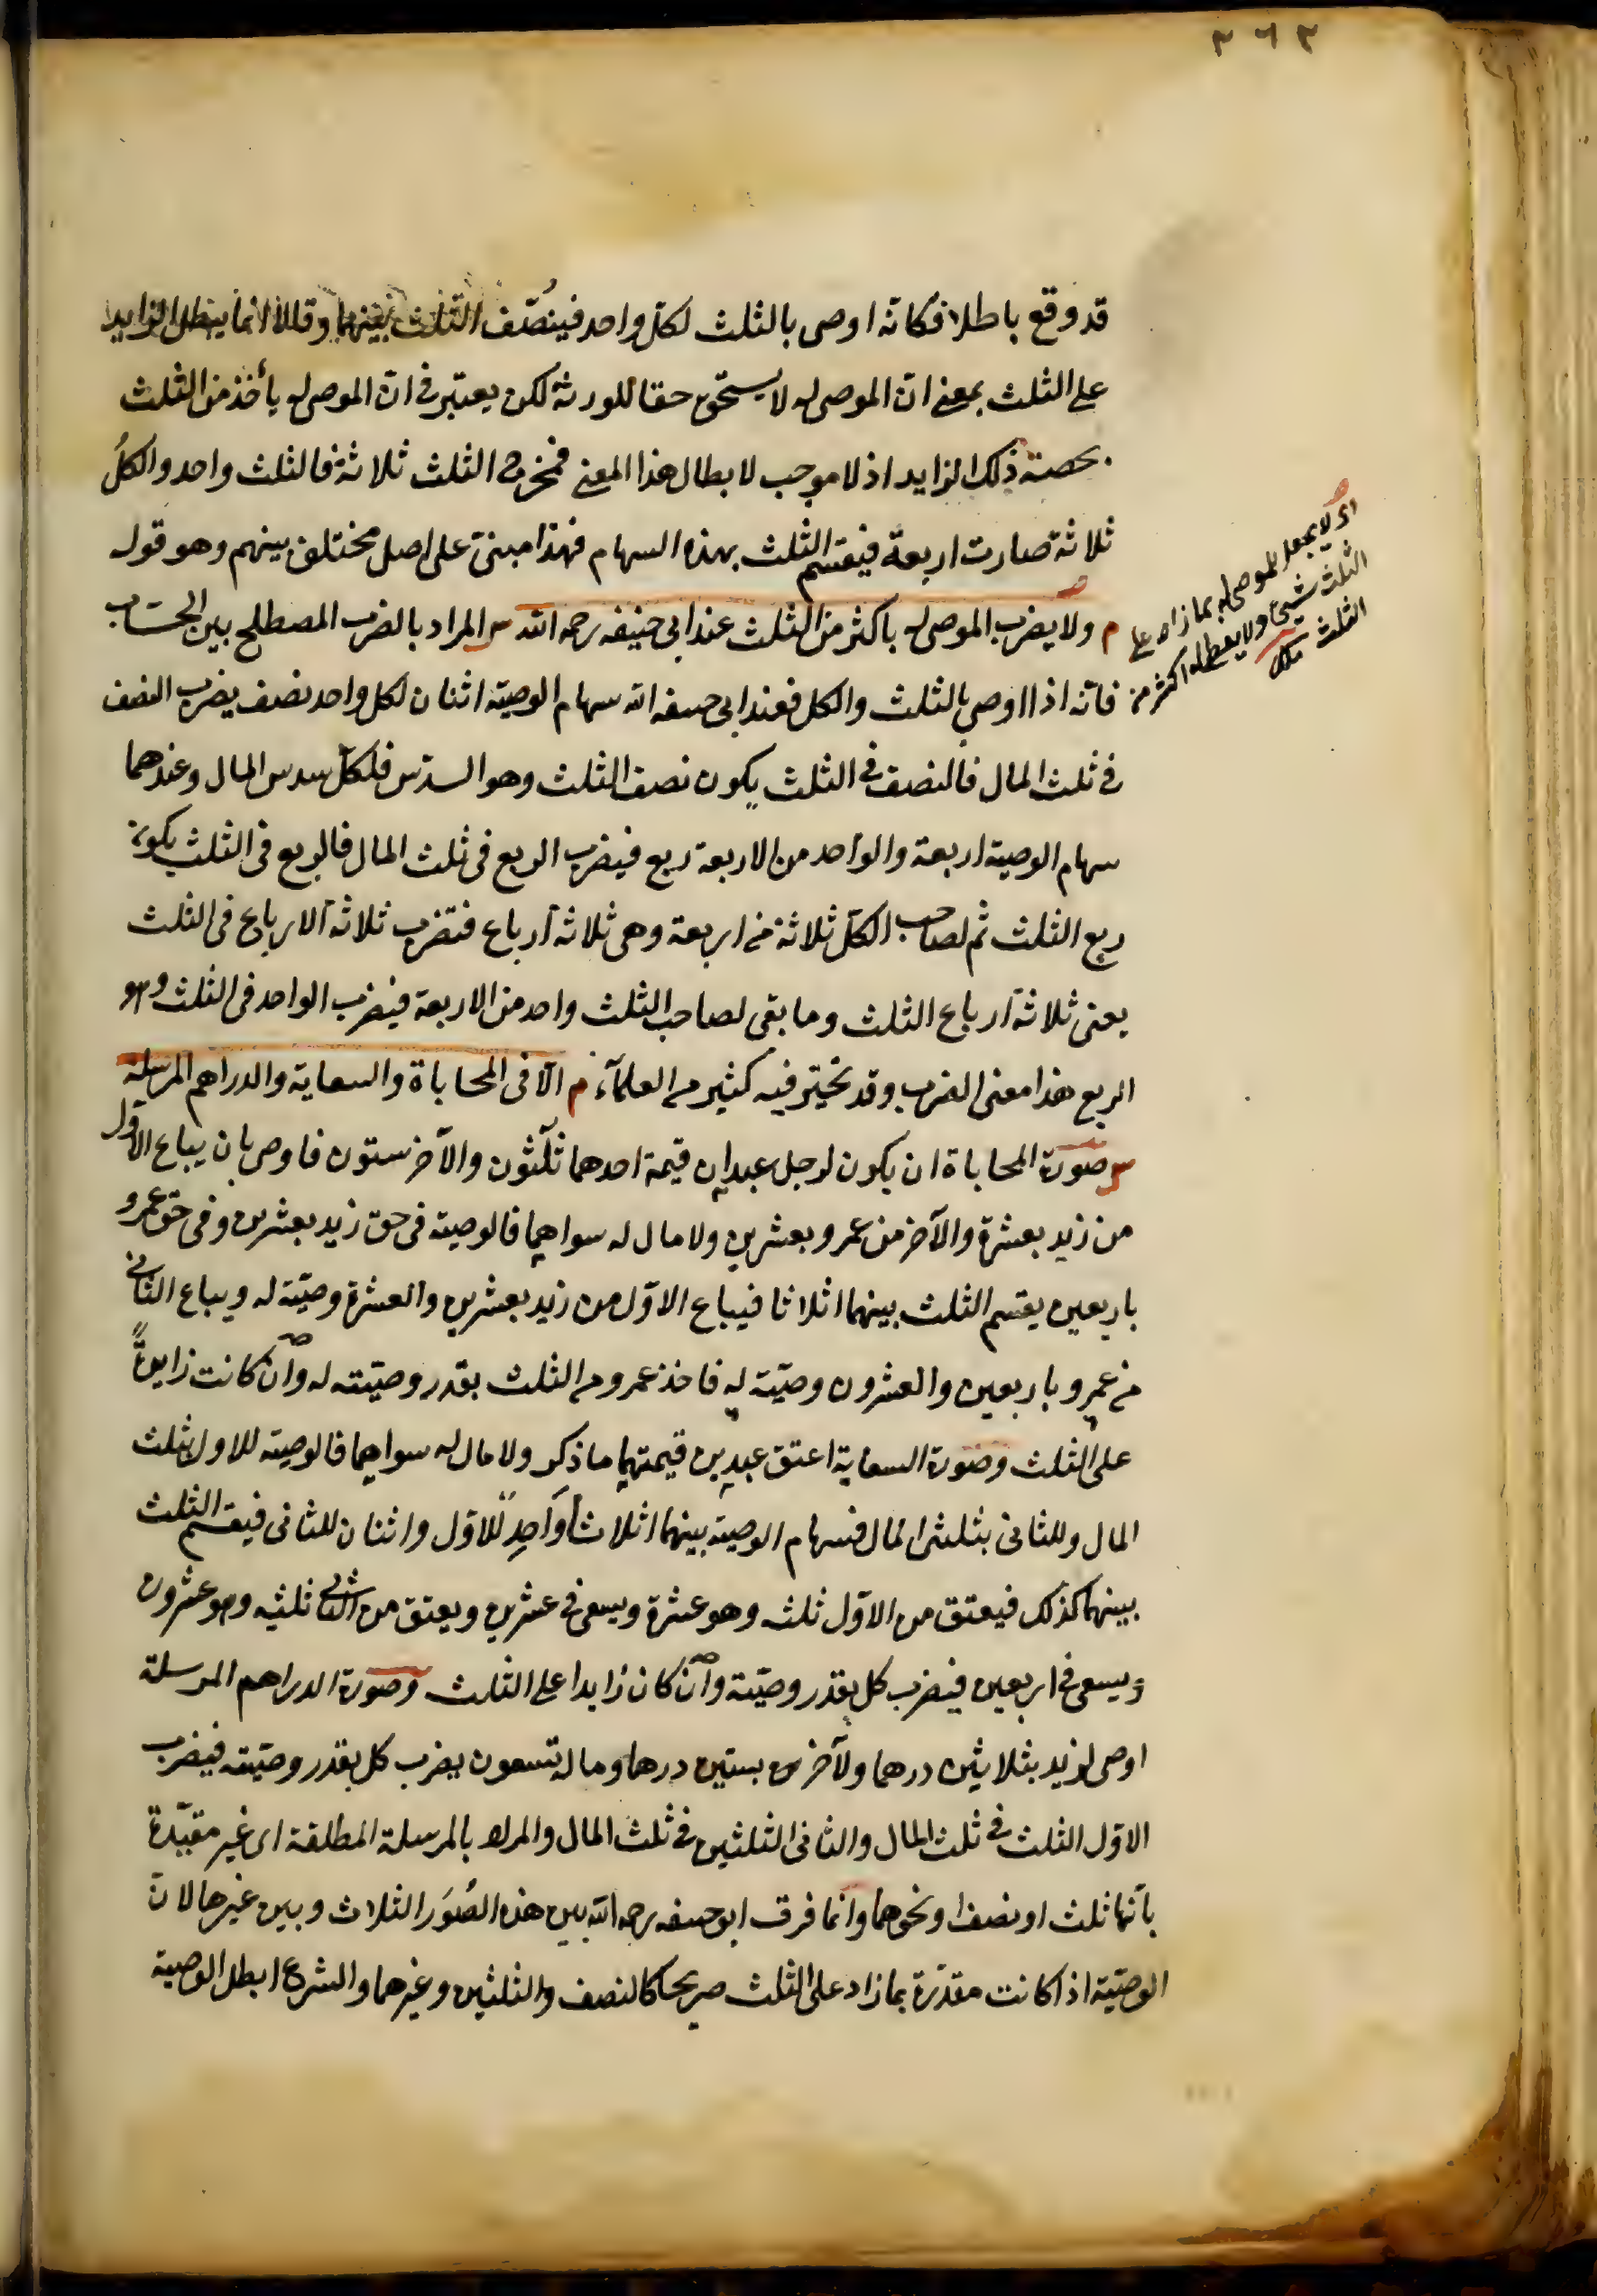 ٣٦٣
قد وقع باطلا فكانه اوصى بالثلث لكل واحد فينصّف الثلث بينهما وقالا انما يبطل الزايد
على الثلث بمعنى انّ الموصى له لا يستحق حقا للورثة لكن يعتبر فى انّ الموصى له يأخذ من الثلث
بحصته ذلك الزايد اذ لا موجب لابطال هذا المعنى فمخرج الثلث ثلاثة فالثلث واحد والكلُ
ثلاثة صارت اربعة فيقسم الثلث بهذه السهام فهذا مبنىّ على اصل مختلف بينهم وهو قوله
م ولا يضرب الموصى له باكثر من الثلث عند ابى حنيفه رحمه الله س المراد بالضرب المصطلح بين الحسّاب
فانّه اذا اوصى بالثلث والكل فعند ابى حنيفه الله سهام الوصية اثنان لكل واحد نصف يضرب النصف
فى ثلث المال فالنصف فى الثلث يكون نصف الثلث وهو السدس فلكلّ سدس المال وعندهما
سهام الوصية اربعة والواحد من الاربعة ربع فيضرب الربع فى ثلث المال فالربع فى الثلث يكون
ربع الثلث ثم لصاحب الكلّ ثلاثة من اربعة وهى ثلاثة ارباع فتضرب ثلاثة الارباع فى الثلث
يعنى ثلاثة ارباع الثلث وما بقى لصاحب الثلث واحد من الاربعة فيضرب الواحد فى الثلث وهو
الربع هذا معنى الضرب وقد تحيّر فيه كثير من العلمآء م الّا فى المحاباة والسعاية والدراهم المرسلة
س صورة المحاباة ان يكون لرجل عبدان قيمة احدهما ثلثون والآخر ستون فاوصى بان يباع الاول
من زيد بعشرة والآخر من عمرو بعشرين ولا مال له سواهما فالوصية فى حق زيد بعشرين وفى حق عمرو
باربعين يقسم الثلث بينهما اثلاثا فيباع الاوّل من زيد بعشرين والعشرة وصيّة له ويباع الثانى
من عمرو باربعين والعشرون وصيّة له فاخذ عمرو من الثلث بقدر وصيّته له وان كانت زايدةً
على الثلث وصورة السعاية اعتق عبدين قيمتهما ما ذكر ولا مال له سواهما فالوصية للاول بثلث
المال وللثانى بثلثى المال فسهام الوصية بينهما اثلاث واحد للاوّل واثنان للثانى فيقسم الثلث
بينهما كذلك فيعتق من الاوّل ثلثه وهو عشرة ويسعى فى عشرين ويعتق من الثانى ثلثه وهو عشرون
ويسعى فى اربعين فيضرب كل بقدر وصيّته وان كان زايدا على الثلث وصورة الدراهم المرسلة
اوصى لزيد بثلاثين درهما ولآخر بستين درهما وماله تسعون يضرب كل بقدر وصيّته فيضرب
الاوّل الثلث فى ثلث المال والثانى الثلثين فى ثلث المال والمراد بالمرسلة المطلقة اى غير مقيّدة
بانّها ثلث او نصف او نحوهما وانّما فرق ابو حنيفه رحمه الله بين هذه الصُوَر الثلاث وبين غيرها لانّ
الوصيّة اذا كانت مقدّرة بما زاد على الثلث صريحا كالنصف والثلثين وغيرهما والشرع ابطل الوصية
اى لا يجعل للموصى له بما زاد على
الثلث شىء ولا يعطى له اكثر من
الثلث